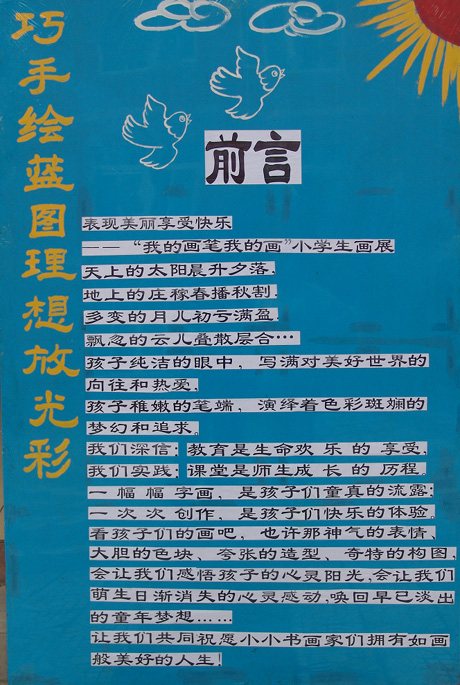 巧手绘蓝图理想放光彩
前言
表现美丽享受快乐
——“我的画笔我的画”小学生画展
天上的太阳晨升夕落,
地上的庄稼春播秋割.
多变的月儿初亏满盈.
飘忽的云儿叠散层合…
孩子纯洁的眼中，写满对美好世界的
向往和热爱.
孩子稚嫩的笔端，演绎着色彩斑斓的
梦幻和追求。
我们深信：教育是生命欢 乐 的 享受,
我们实践：课堂是师生成 长 的 历程。
一 幅 幅 字画，是孩子们童真的流露;
一 次 次 创作，是孩子们快乐的体验.
看孩子们的画吧，也许那神气的表情、
大胆的色块、夸张的造型、奇特的构图,
会让我们感悟孩子的心灵阳光,会让我们
萌生日渐消失的心灵感动,唤回早已淡出
的童年梦想……
让我们共同祝愿小小书画家们拥有如画
般美好的人生!